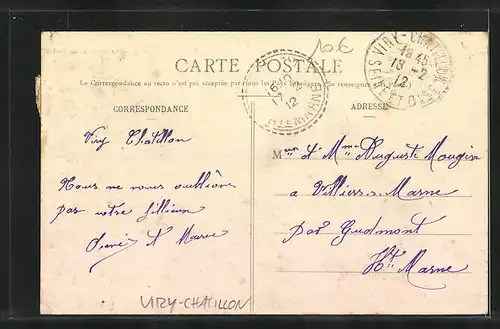 10 E
CARTE POSTALE
La Correspondance au recto n'est pas acceptée par tous les Pays
CORRESPONDANCE
ADRESSE
VIRY-CHATILLON
18 45
18-2
12
SEINE ET OISE
16
17
12
HTE MARNE
Viry Chatillon
Nous ne vous oublions
pas votre filleux
et Marie
Mr et Mme Auguste Mougin
a Villiers s. Marne
par Gudmont
Hte Marne
VIRY-CHATILLON